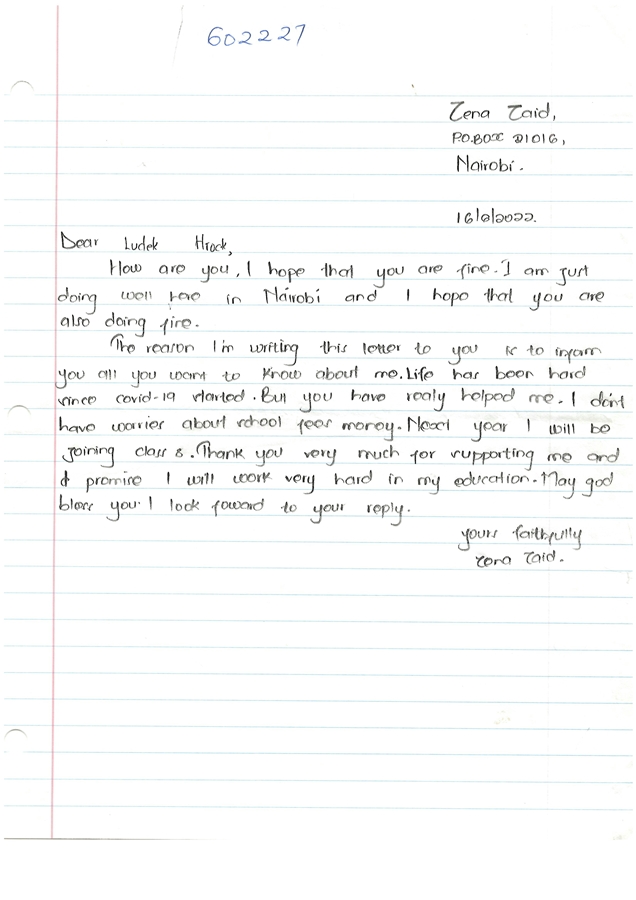 602227
Zena Zaid,
P.O.BOX 21016,
Nairobi.
16/6/2022.
Dear Ludek Hrock,
How are you, I hope that you are fine. I am just
doing well here in Nairobi and I hope that you are
also doing fine.
The reason I'm writing this letter to you is to inform
you all you want to know about me. Life has been hard
since covid-19 started. But you have realy helped me. I don't
have worries about school fees money. Next year I will be
joining class 8. Thank you very much for supporting me and
I promise I will work very hard in my education. May god
bless you. I look foward to your reply.
yours faithfully
Zena Zaid.